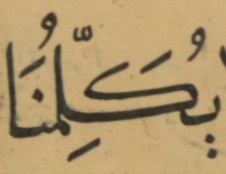 يُكَلِّمُنَا